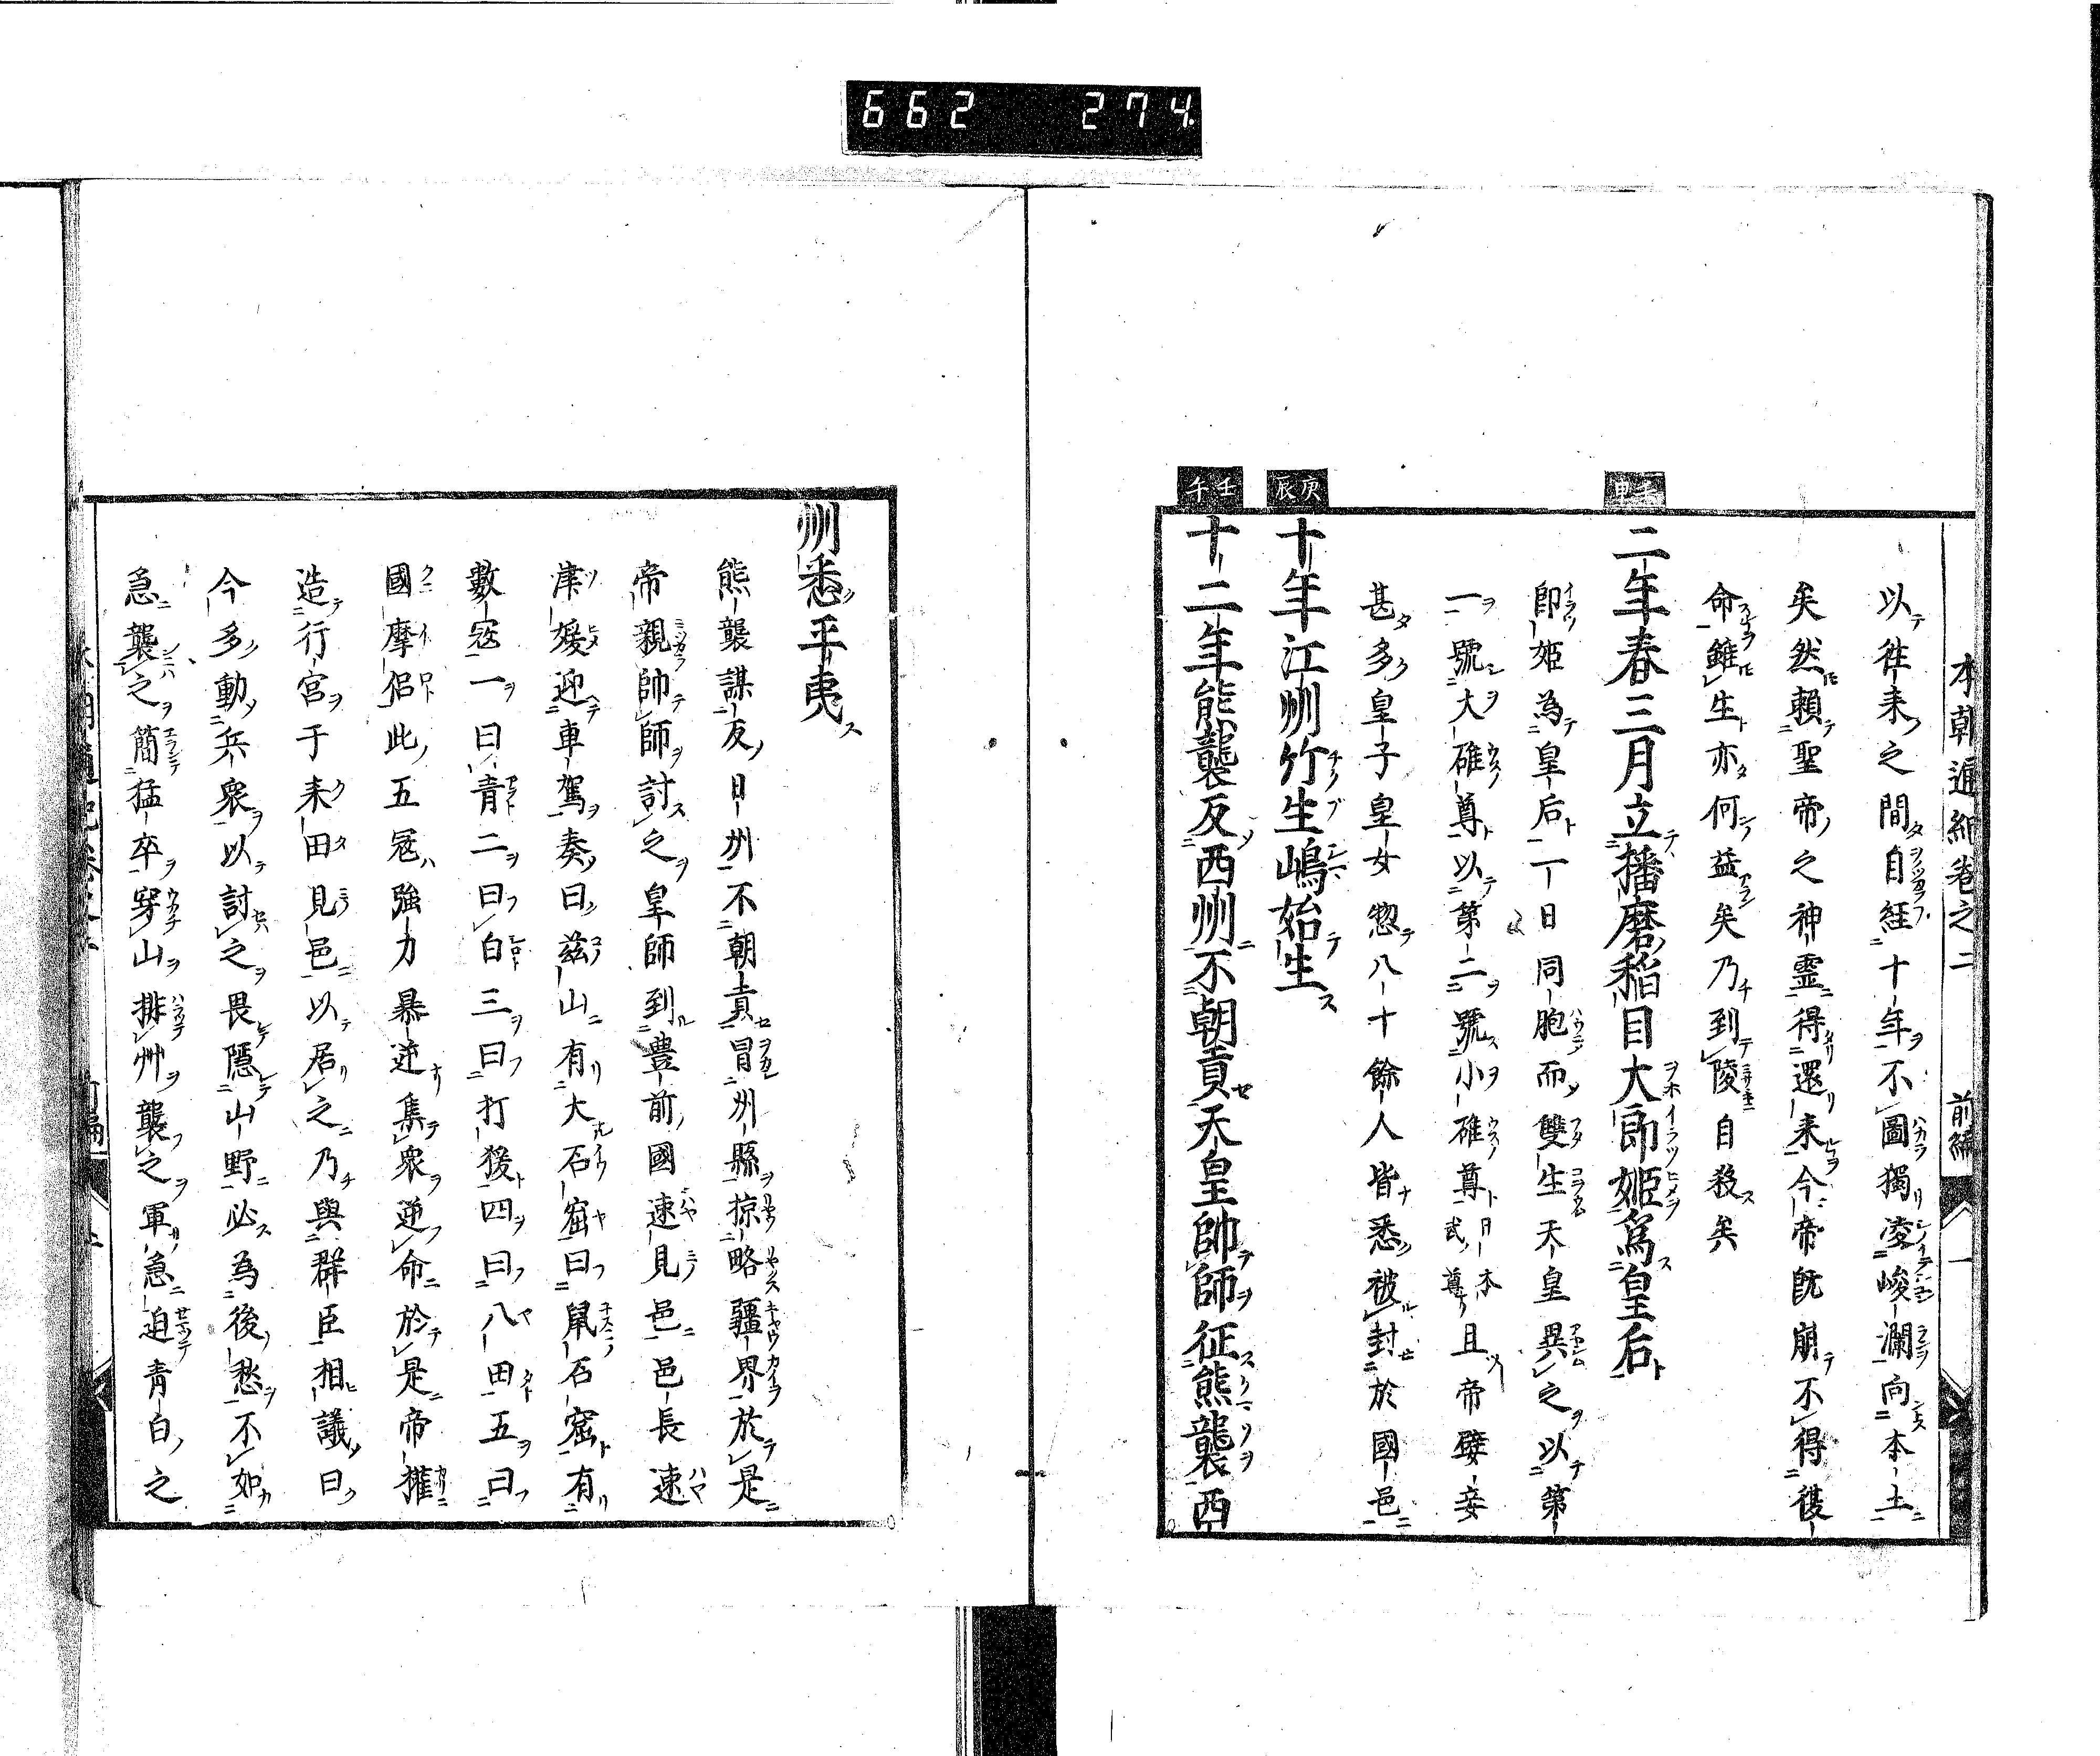 662 274
本朝通紀卷之二 前編 一
以徃来之間自経十年不圖獨凌峻瀾向本土
矣然頼聖帝之神霊得還来今帝既崩不得復
命雖生亦何益矣乃到陵自殺矣
壬申
二年春三月立播磨稲目大郎姫為皇后
郎姫為皇后一日同胞而雙生天皇異之以第
一號大碓尊以第二號小碓尊日本武尊且帝嬖妾
甚多皇子皇女惣八十餘人皆悉被封於國邑
庚辰
十年江州竹生嶋始生
壬午
十二年熊襲反西州不朝貢天皇帥師征熊襲西
州悉平夷
熊襲謀反日州不朝貢冒州縣掠略疆界於是
帝親帥師討之皇師到豊前國速見邑邑長速
津媛迎車駕奏曰茲山有大石窟曰鼠石窟有
數寇一曰青二曰白三曰打猨四曰八田五曰
國摩侶此五冦強力暴逆集衆逆命於是帝權
造行宮于来田見邑以居之乃與群臣相議曰
今多動兵衆以討之畏隱山野必為後愁不如
急襲之簡猛卒穿山排艸襲之軍急迫青白之